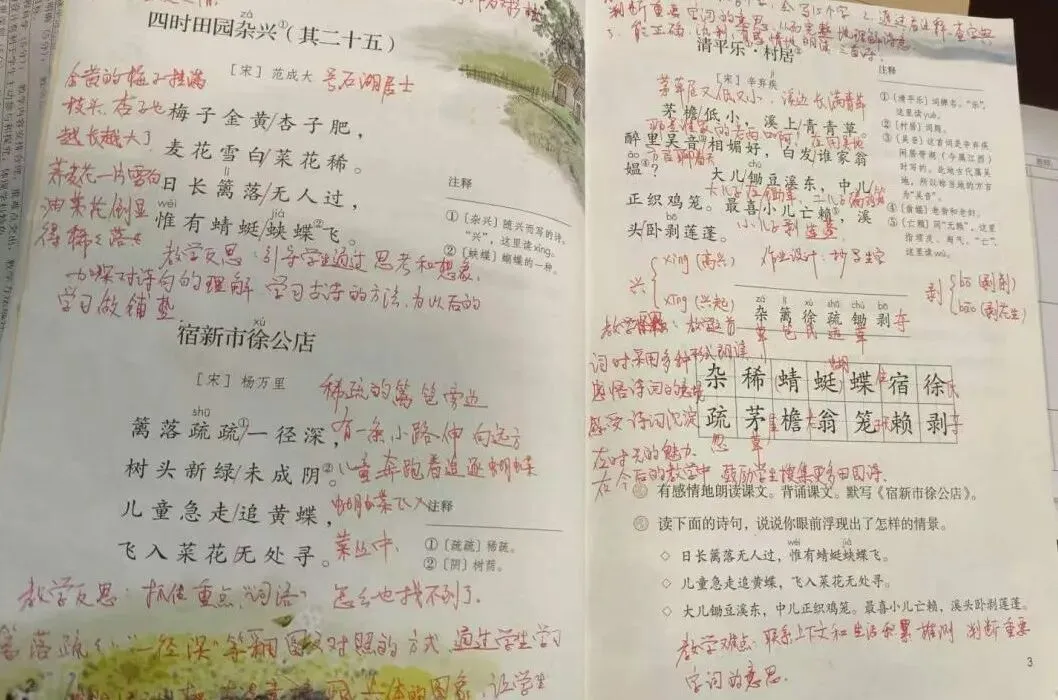 四时田园杂兴①（其二十五）
zá
［宋］范成大 号石湖居士
金黄的梅子挂满
枝头，杏子也
越长越大了
梅子金黄/杏子肥，
麦花雪白/菜花稀。
荞麦花一片雪白
油菜花倒显
得稀稀落落
lí
日长篱落/无人过，
wéi jiá
惟有蜻蜓/蛱蝶②飞。
注释
①〔杂兴〕随兴而写的诗。
“兴”，这里读xìng。
②〔蛱蝶〕蝴蝶的一种。
教学反思：引导学生通过思考和想象，
加深对诗句的理解，学习古诗的方法，为以后的
学习做铺垫
xú
宿新市徐公店
［宋］杨万里
稀疏的篱笆旁边
shū
篱落疏疏①/一径深，
有一条小路伸向远方
树头新绿/未成阴②。
儿童奔跑着追逐蝴蝶
儿童急走/追黄蝶，
蝴蝶飞入
飞入菜花/无处寻。
菜丛中，
注释
①〔疏疏〕稀疏。
②〔阴〕树荫。
教学反思：抓住重点“词语” 怎么也找不到了.
“一径深”等 图文对照的方式，通过学生学习
清平乐·村居
［宋］辛弃疾
茅草屋又低又小，溪边长满青草
茅檐/低小，溪上/青青草。
醉里吴音/相媚好，白发/谁家翁
ǎo
媪④？
大儿/锄豆溪东，中儿/
正织鸡笼。最喜/小儿亡赖⑤，溪
bō
头/卧剥莲蓬。
小儿子剥莲蓬
注释
①〔清平乐〕词牌名。“乐”，
这里读yuè。
②〔村居〕词题。
③〔吴音〕这首词是辛弃疾
闲居带湖（今属江西）
时写的。此地古代属吴
地，所以称当地的方言
为“吴音”。
④〔翁媪〕老翁和老妇。
⑤〔亡赖〕同“无赖”，这里
指顽皮、淘气。“亡”，
这里读wú。
兴 xìng（高兴）
xīng（兴起）
作业设计：抄写生字
剥 bō（剥削）
bāo（剥花生）
zá lí xú shū chú bō
杂 篱 徐 疏 锄 剥
词时采用多种形式朗读
感悟诗词的意境
感受诗词沉淀
在时光的魅力.
在今后的教学中 鼓励学生搜集更多田园诗.
杂 稀 蜻 蜓 蝶 宿 徐
疏 茅 檐 翁 笼 赖 剥
有感情地朗读课文。背诵课文。默写《宿新市徐公店》。
读下面的诗句，说说你眼前浮现出了怎样的情景。
wéi jiá
◇ 日长篱落无人过，惟有蜻蜓蛱蝶飞。
◇ 儿童急走追黄蝶，飞入菜花无处寻。
◇ 大儿锄豆溪东，中儿正织鸡笼。最喜小儿亡赖，溪头卧剥莲蓬。
教学难点：联系上下文和生活积累推测 判断重要
字词的意思.
3